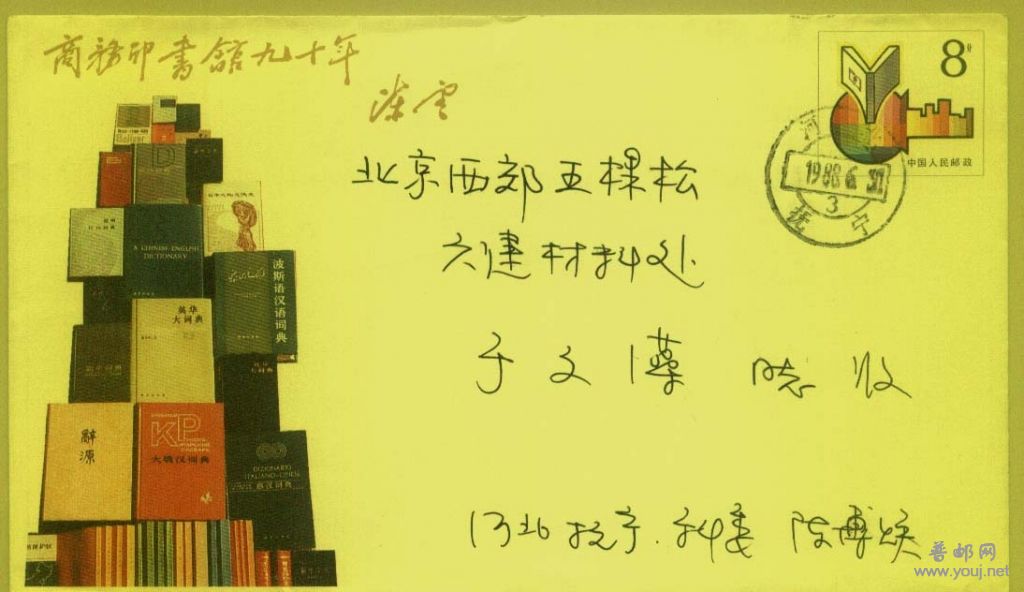 商務印書館九十年
陈雲
8分
中国人民邮政
河
1988.6.
3
抚宁
北京西郊五棵松
六建材料处
于文 收
河北抚宁.科委 陈博
A CHINESE-ENGLISH
DICTIONARY
波斯语汉语词典
英华
大词典
辭源
KP
大俄汉词典
DIZIONARIO
ITALIANO-CINESE
意汉词典
普邮网
www.youj.net